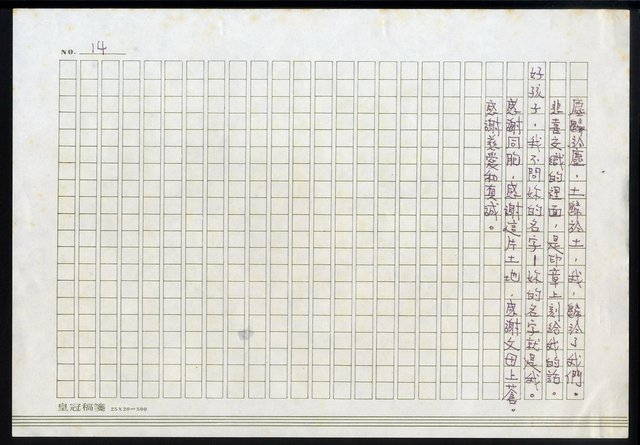 NO. 14
塵歸於塵，土歸於土，我，歸於了我們。
悲喜交織的裡面，是印章上刻給我的話。
好孩子，我不問妳的名字－妳的名字就是我。
感謝同胞，感謝這片土地，感謝父母上蒼。
感謝慈愛和真誠。
皇冠稿箋 25×20=500